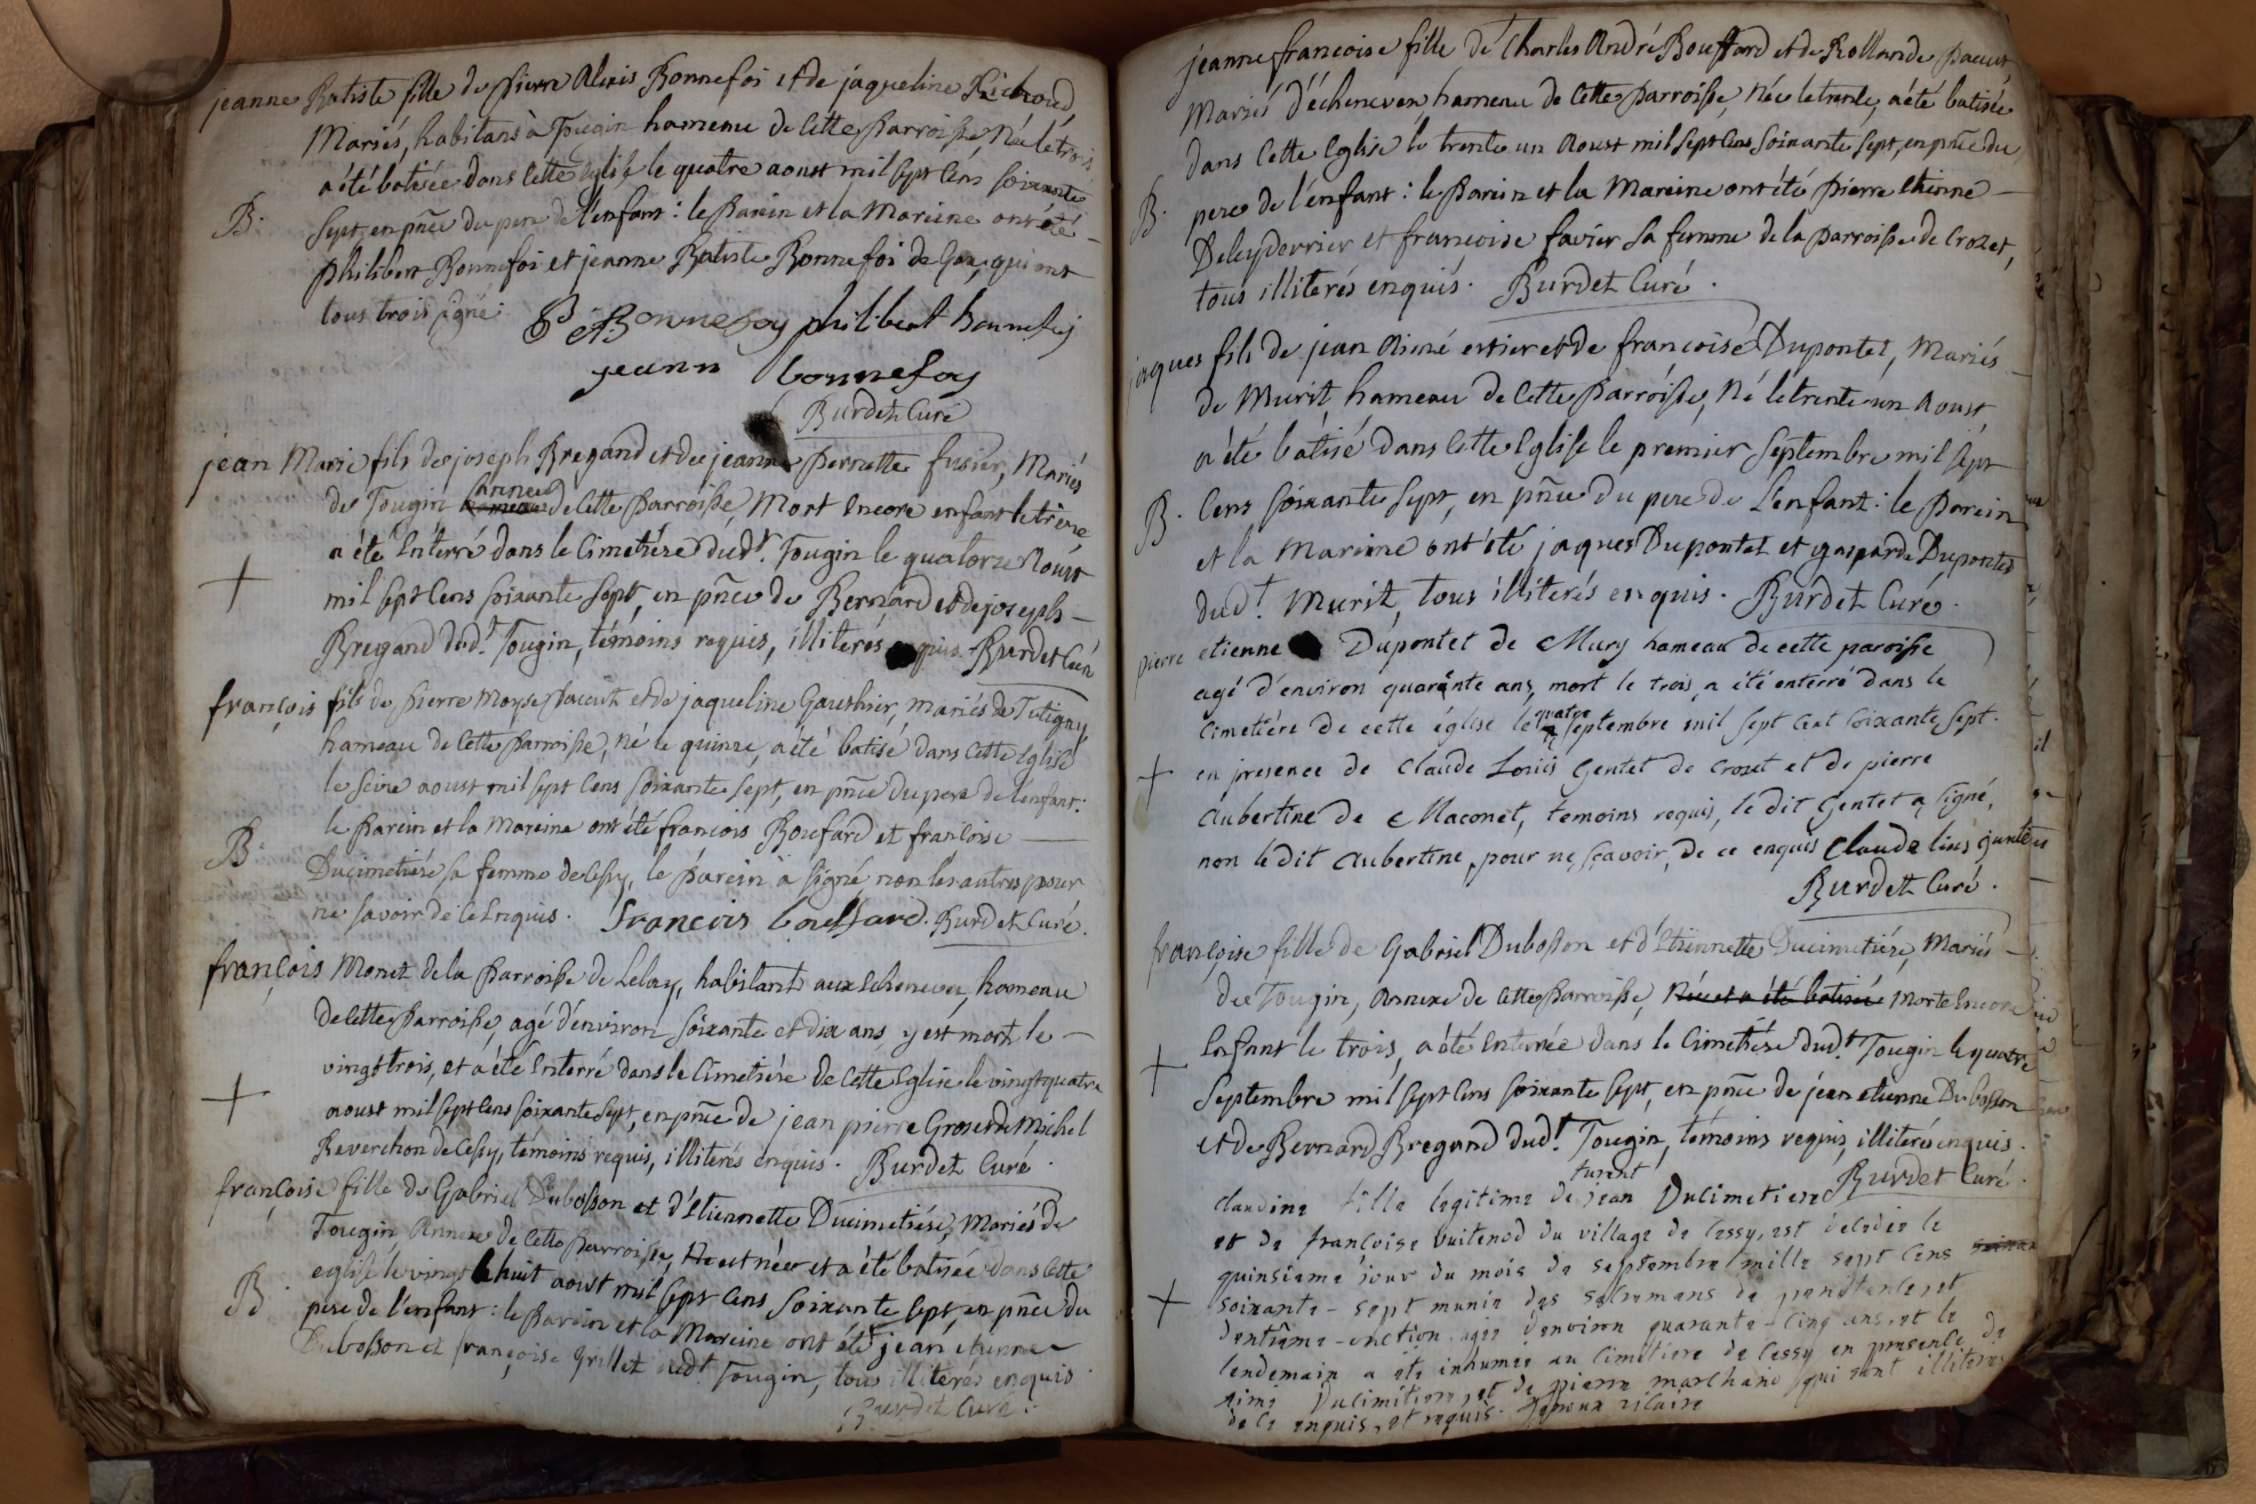 jeanne Batiste fille de pierre Alexis Bonnefoi et de jaqueline Richoud
Mariés, habitans à Tougin hameau de cette Parroisse, Née le trois
a été batisée dans cette église le quatre aoust mil sept cens soixante
B.
sept, en pñce du pere de l'enfant : le Parein et la Mareine ont été
philibert Bonnefoi et jeanne Batiste Bonnefoi de Gex, qui ont
tous trois signé.
Bonnefoy philibert bonnefoy
jeann bonnefoy
Burdet Curé
jean Marie fils de joseph Bregand et de jeanne Pernette fusier, Mariés
de Tougin annexe de cette Parroisse, Mort encore enfant le treize
a été Enterré dans le Cimetiére dudt. Tougin le quatorze Aoust
+
mil sept cens soixante sept, en pñce de Bernard et de joseph
Bregand dudt. Tougin, témoins requis, illiterés enquis. Burdet Curé
françois fils de pierre Moyse Pacout et de jaqueline Gauthier, mariés de Tutigny
hameau de cette Parroisse, né le quinze, a été batisé dans cette Eglise
le seize aoust mil sept cens soixante sept, en pñce du pere de l'enfant :
le Parein et la Mareine ont été francois Boufard et francoise
B.
Ducimetiére sa femme de Cessy, le parein a signé non les autres pour
ne savoir de ce Enquis. francois bouffard. Burdet Curé.
françois Monet de la Parroisse de Lelex, habitant aux Echenevex, hameau
de cette Parroisse, agé d'environ soixante et dix ans, y est mort le
vingt trois, et a été Enterré dans le Cimetiére de cette Eglise le vingt quatre
+
aoust mil sept cens soixante sept, en pñce de jean pierre Gros et de Michel
Reverchon de Cessy, témoins requis, illiterés enquis. Burdet Curé.
françoise fille de Gabriel Dubosson et d'Etiennette Ducimetiére, Mariés de
Tougin Annexe de cette Parroisse, est née et a été batisée dans cette
eglise le vingt huit aoust mil sept cens soixante sept, en pñce du
B
pere de l'enfant : le Parein et la Mareine ont été jean etienne
Dubosson et françoise Grillet dudt Tougin, tous illiterés enquis.
Burdet Curé.
jeanne francoise fille de Charles André Bouffard et de Rollande Pacout
Mariés d'échenevex, hameau de cette Parroisse, Née le trente, a été batisée
dans cette Eglise le trente un Aoust mil sept cens soixante sept, en pñce du
B.
pere de l'enfant : le Parein et la Mareine ont été Pierre Etienne
Deleyderrier et francoise favier sa femme de la Parroisse de Crozet,
tous illiterés enquis. Burdet Curé.
jaques fils de jean Aimé estier et de francoise Dupontet, Mariés
de Murit, hameau de cette Parroisse, Né le trente un Aoust
a été batisé dans cette Eglise le premier Septembre mil sept
B.
cens soixante sept, en pñce du pere de l'enfant : le Parein
et la Mareine ont été jaques Dupontet et gasparde Dupontet
dudt. Murit, tous illiterés enquis. Burdet Curé.
pierre etienne Dupontet de Mury hameau de cette paroisse
agé d'environ quarante ans, mort le trois, a été enterré dans le
cimetiére de cette église le quatre septembre mil sept cent soixante sept.
+
en presence de Claude Louis Gentet de Crozet et de pierre
Aubertine de Maconet, temoins requis, le dit Gentet a signé,
non le dit Aubertine, pour ne sçavoir, de ce enquis Claude
Burdet Curé.
françoise fille de Gabriel Dubosson et d'Etiennette Ducimetiére, Mariés
de Tougin, Annexe de cette Parroisse, Née et a été batisée morte encore
Enfant le trois, a été Enterrée dans le Cimetiére dudt. Tougin le quatre
+
Septembre mil sept cens soixante sept, en pñce de jean etienne Dubosson
et de Bernard Bregand dudt. Tougin, témoins requis, illiterés enquis.
Burdet Curé.
Claudine fille legitime de jean Ducimetiere
et de françoise buitenod du village de Cessy, est decedée le
quinsieme jour du mois de septembre mille sept cens
+
soixante-sept munie des sacremans de penitence et
d'entrême-onction agée d'environ quarante-cinq ans, et le
lendemain a été inhumée au Cimetiere de Cessy en presence de
aimé Ducimetiere, et de pierre marchand qui sont illiteres
de ce enquis, et requis. vicaire